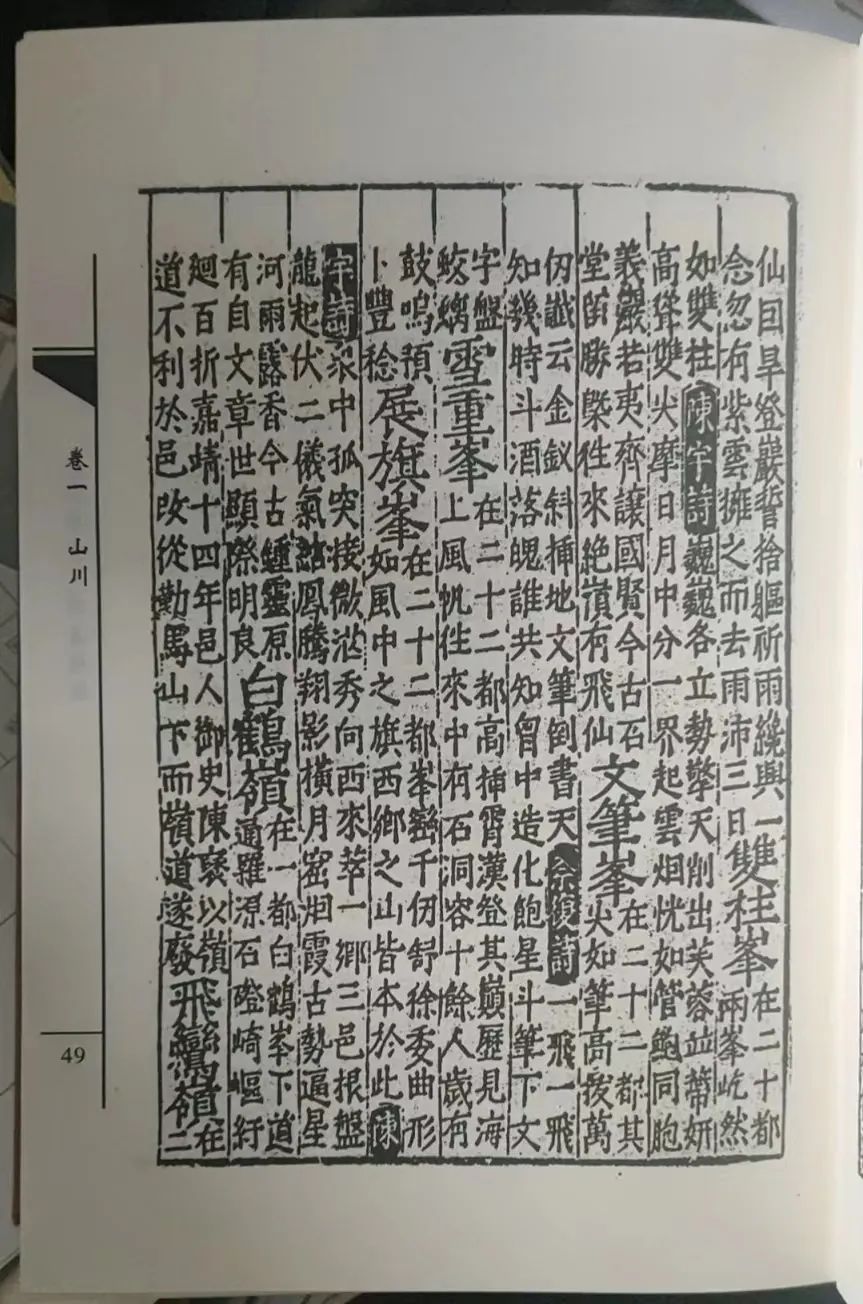 仙因旱登巖誓捨軀祈雨纔與一
念忽有紫雲擁之而去雨沛三日
雙柱峯
在二十都
兩峯屹然
如雙柱陳宇詩巍巍各立勢擎天削出芙蓉並蒂妍
高聳雙尖摩日月中分一界起雲烟恍如管鮑同胞
義儼若夷齊讓國賢今古石
堂留勝槩往來絶嶺有飛仙
文筆峯
在二十二都其
尖如筆高拔萬
仞讖云金釵斜挿地文筆倒書天余復詩一飛一飛
知幾時斗酒落魄誰共知胷中造化飽星斗筆下文
字盤
蛟螭
雪重峯
在二十二都高挿霄漢登其巔歷見海
上風帆往來中有石洞容十餘人歲有
鼓鳴預
卜豐稔
展旗峯
在二十二都峯巒千仞舒徐委曲形
如風中之旗西鄉之山皆本於此陳
宇詩衆中孤突接微茫秀向西來萃一鄉三邑根盤
龍起伏二儀氣結鳳騰翔影横月窟烟霞古勢逼星
河雨露香今古鍾靈原
有自文章世顯際明良
白鶴嶺
在一都白鶴峯下道
通羅源石磴崎嶇紆
廻百折嘉靖十四年邑人御史陳襃以嶺
道不利於邑改從勒馬山下而嶺道遂廢
飛鸞嶺
在
二
卷一 山川
49